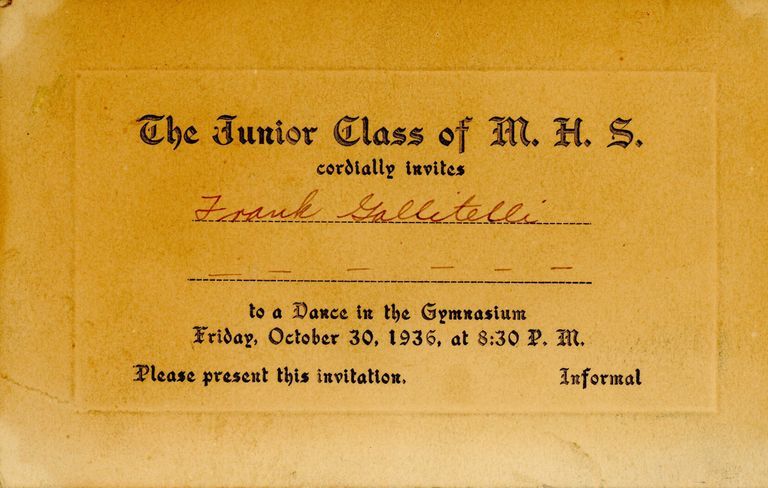 The Junior Class of M. H. S.
cordially invites
Frank Gallitelli
to a Dance in the Gymnasium
Friday, October 30, 1936, at 8:30 P. M.
Please present this invitation. Informal